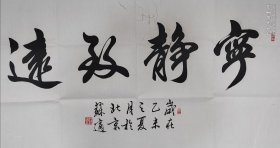 寧靜致遠
歲在
乙未
之夏
月於
北京
蘇適